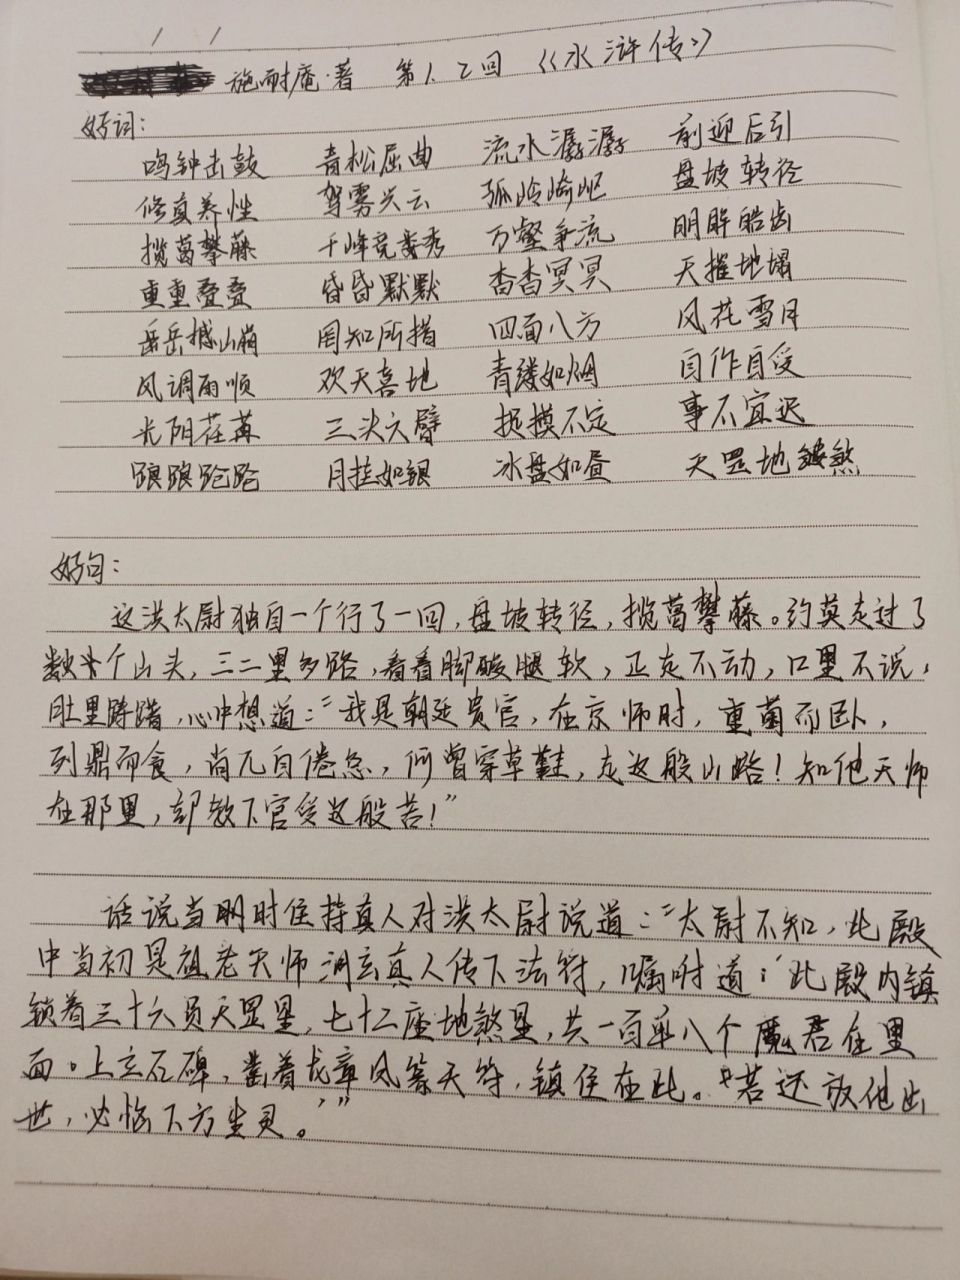 施耐庵·著 第1、2回 《水浒传》
好词:
鸣钟击鼓 青松屈曲 流水潺潺 前迎后引
修真养性 驾雾兴云 孤岭崎岖 盘坡转径
揽葛攀藤 千峰竞秀 万壑争流 明眸皓齿
重重叠叠 昏昏默默 杳杳冥冥 天摧地塌
岳撼山崩 罔知所措 四面八方 风花雪月
风调雨顺 欢天喜地 青缕如烟 自作自受
光阴荏苒 三头六臂 捉摸不定 事不宜迟
踉踉跄跄 月挂如银 冰盘如昼 天罡地煞
好句:
这洪太尉独自一个行了一回,盘坡转径,揽葛攀藤。约莫走过了
数个山头,三二里多路,看看脚酸腿软,正走不动,口里不说,
肚里踌躇,心中想道:“我是朝廷贵官,在京师时,重茵而卧,
列鼎而食,尚兀自倦怠,何曾穿草鞋,走这般山路!知他天师
在那里,却教下官受这般苦!”
话说当时住持真人对洪太尉说道:“太尉不知,此殿
中当初是祖老天师洞玄真人传下法符,嘱咐道:‘此殿内镇
锁着三十六员天罡星,七十二座地煞星,共一百单八个魔君在里
面。上立石碑,凿着龙章凤篆天符,镇住在此。若还放他出
世,必恼下方生灵。’”